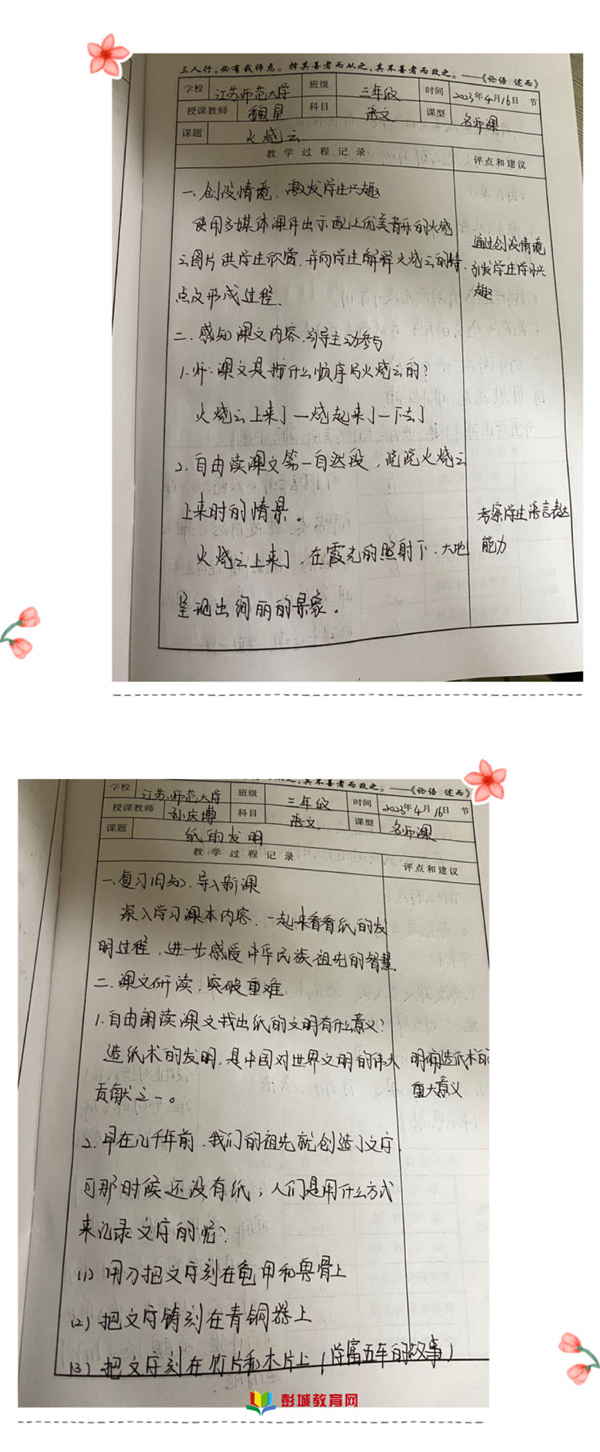 三人行,必有我师焉。择其善者而从之,其不善者而改之。——《论语 述而》
学校 江苏师范大学 班级 三年级 时间 2023年4月16日 节
授课教师 魏星 科目 语文 课型 名师课
课题 火烧云
教学过程记录 评点和建议
一、创设情境,激发学生兴趣
使用多媒体课件出示配上优美音乐的火烧
云图片供学生欣赏,并向学生解释火烧云的特
点及形成过程.
通过创设情境
引发学生学习兴
趣
二、感知课文内容,引导主动参与
1.师:课文是按什么顺序写火烧云的?
火烧云上来了—烧起来了—下去了
2.自由读课文第一自然段,说说火烧云
上来时的情景。
火烧云上来了,在霞光的照射下,大地
呈现出绚丽的景象。
考察学生语言表达
能力
其不善者而改之。——《论语 述而》
学校 江苏师范大学 班级 三年级 时间 2023年4月16日 节
授课教师 孙庆博 科目 语文 课型 名师课
课题 纸的发明
教学过程记录 评点和建议
一、复习旧知,导入新课
深入学习课本内容,一起来看看纸的发
明过程,进一步感受中华民族祖先的智慧
二、课文研读,突破重难
1.自由朗读课文找出纸的文明有什么意义?
造纸术的发明,是中国对世界文明的伟大
贡献之一。
明确造纸术的
重大意义
2.早在几千年前,我们的祖先就创造了文字
可那时候还没有纸,人们是用什么方式
来记录文字的呢?
(1)用刀把文字刻在龟甲和兽骨上
(2)把文字铸刻在青铜器上
(3)把文字刻在竹片和木片上(学富五车的故事)
彭城教育网